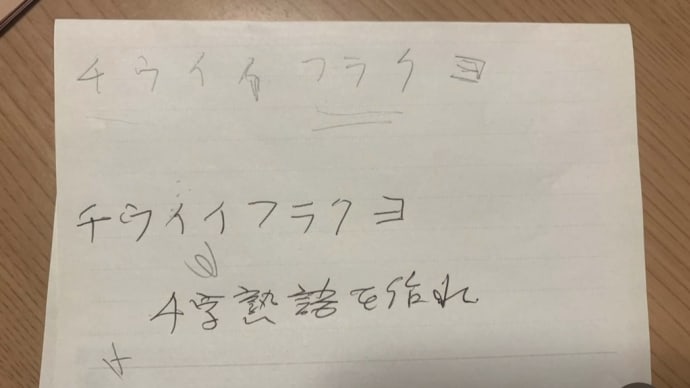 チウイイフラクヨ
チウイイフラクヨ
4字熟語を作れ